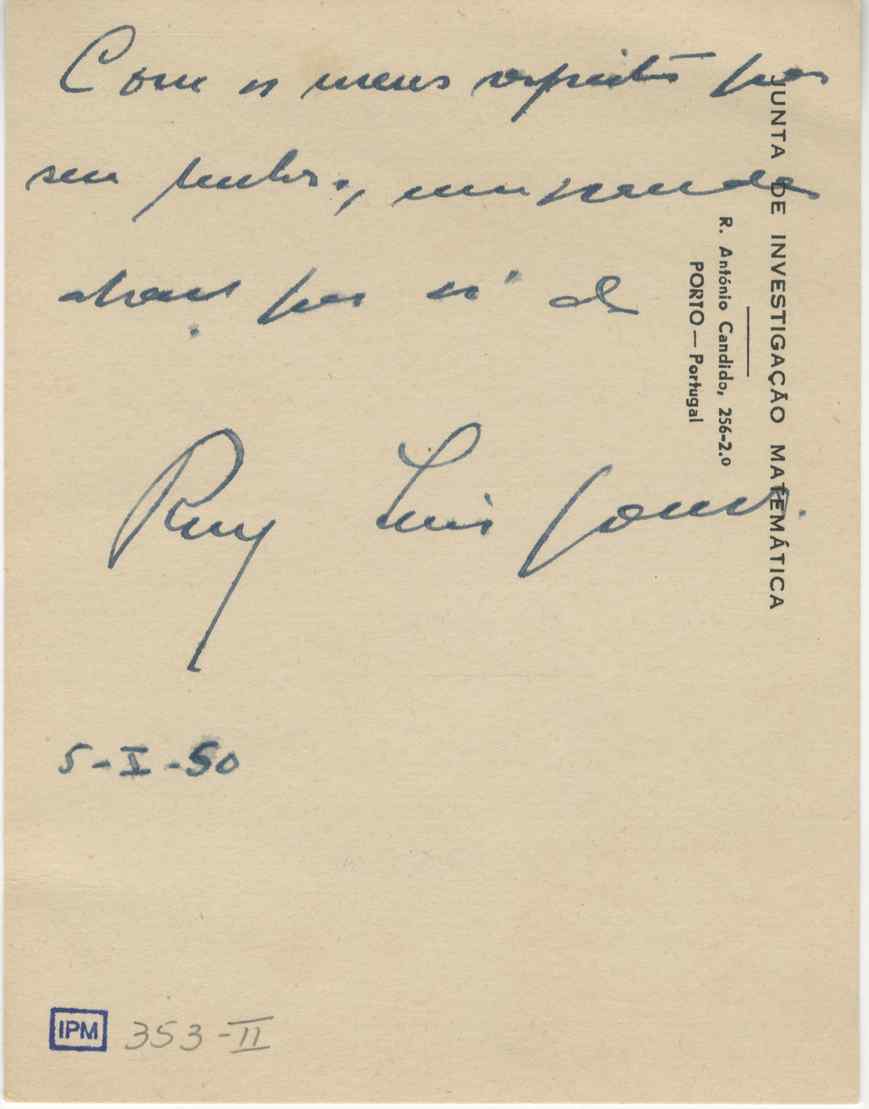 Com os meus respeitos para
sua um grande
abraço para si de
Ruy Luis Gomes.
5-I-50
JUNTA DE INVESTIGAÇÃO MATEMÁTICA
R. António Candido, 256-2.º
PORTO — Portugal
IPM 353-II